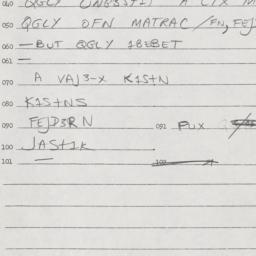 050 QGLY OFN MATRAC /FN, FEJ
060 —BUT QGLY 1BEBET
061 —
070 A VAJ3-X K1S+N
080 K1S+NS
090 FEJD3RN 091 PUX
100 JAS+1K
101 —